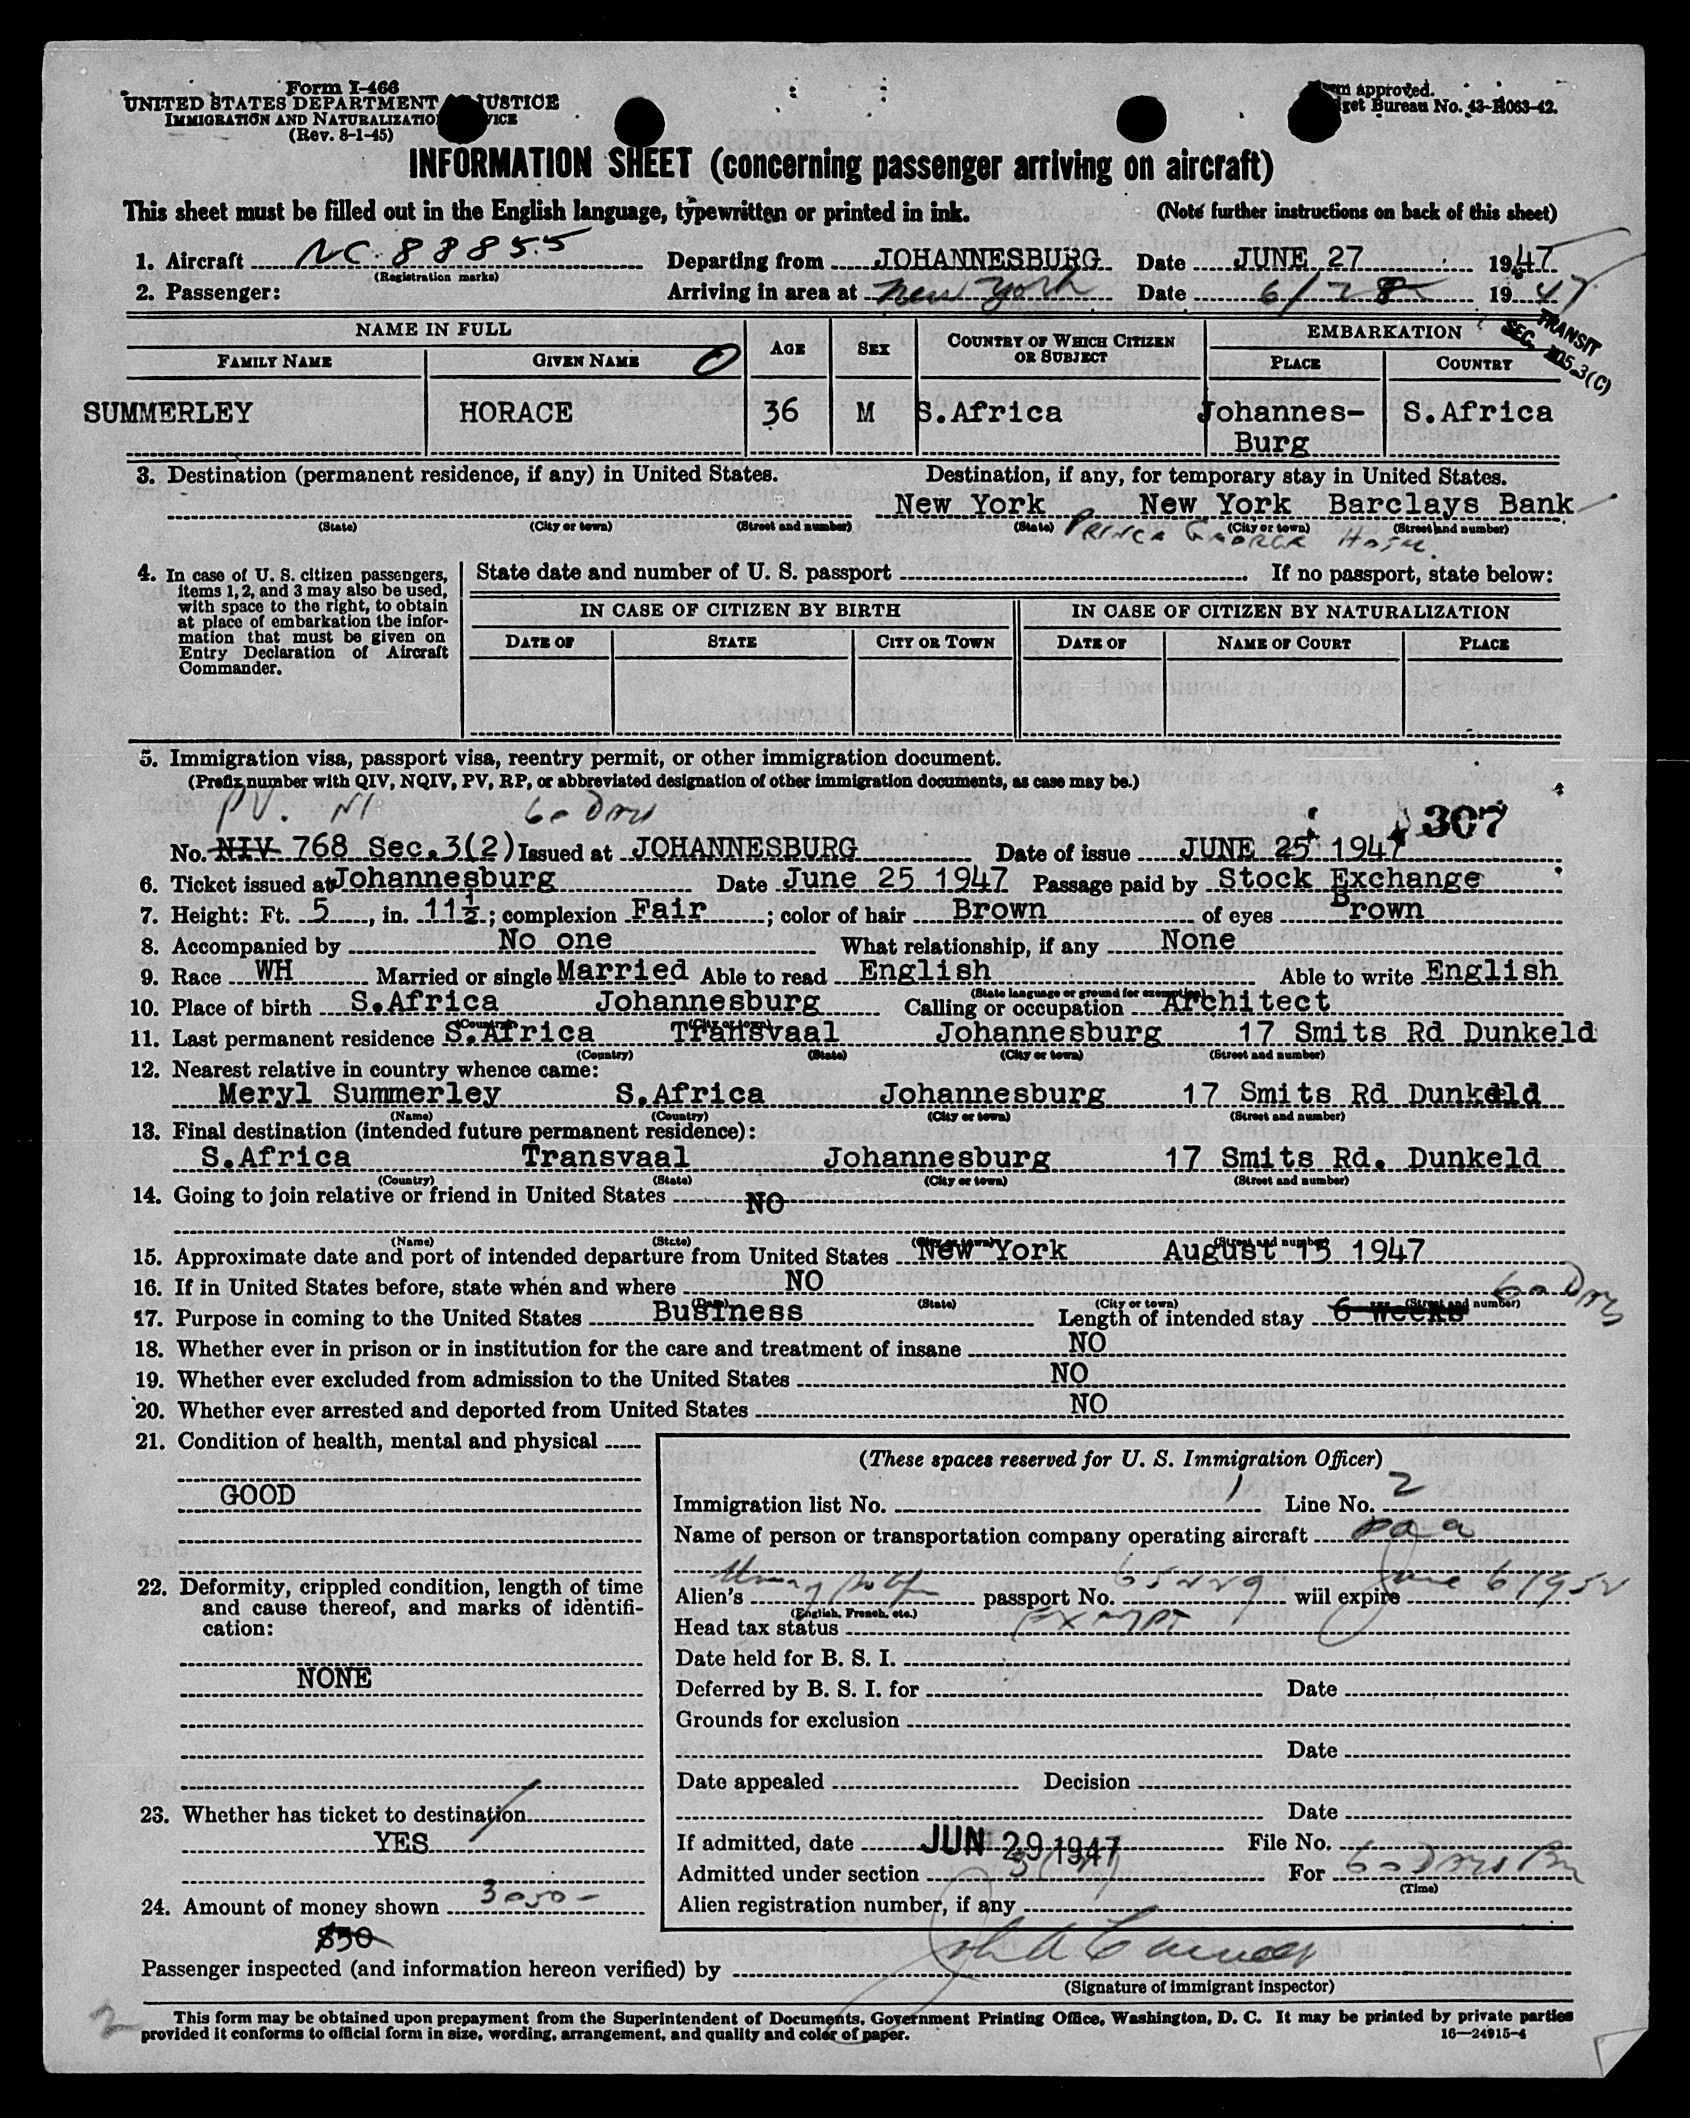 Form I-466
UNITED STATES DEPARTMENT OF JUSTICE
IMMIGRATION AND NATURALIZATION SERVICE
(Rev. 8-1-45)
Form approved.
Budget Bureau No. 43-R063-42.
INFORMATION SHEET (concerning passenger arriving on aircraft)
This sheet must be filled out in the English language, typewritten or printed in ink. (Note further instructions on back of this sheet)
1. Aircraft NC 88855 Departing from JOHANNESBURG Date JUNE 27 1947
(Registration marks)
2. Passenger: Arriving in area at New York Date 6/28 1947
TRANSIT
SEC. 105.3(C)
NAME IN FULL AGE SEX COUNTRY OF WHICH CITIZEN OR SUBJECT EMBARKATION
FAMILY NAME GIVEN NAME PLACE COUNTRY
SUMMERLEY HORACE 36 M S.Africa Johannes- S.Africa
Burg
3. Destination (permanent residence, if any) in United States. Destination, if any, for temporary stay in United States.
New York New York Barclays Bank
(State) (City or town) (Street and number) (State) (City or town) (Street and number)
PRINCE GEORGE HOTEL.
4. In case of U. S. citizen passengers, items 1, 2, and 3 may also be used, with space to the right, to obtain at place of embarkation the information that must be given on Entry Declaration of Aircraft Commander.
State date and number of U. S. passport If no passport, state below:
IN CASE OF CITIZEN BY BIRTH IN CASE OF CITIZEN BY NATURALIZATION
DATE OF STATE CITY OR TOWN DATE OF NAME OF COURT PLACE
5. Immigration visa, passport visa, reentry permit, or other immigration document.
(Prefix number with QIV, NQIV, PV, RP, or abbreviated designation of other immigration documents, as case may be.)
PV. NI 60 Days 307
No. NIV 768 Sec.3(2) Issued at JOHANNESBURG Date of issue JUNE 25 1947
6. Ticket issued at Johannesburg Date June 25 1947 Passage paid by Stock Exchange
7. Height: Ft. 5, in. 11½; complexion Fair; color of hair Brown of eyes Brown
8. Accompanied by No one What relationship, if any None
9. Race WH Married or single Married Able to read English Able to write English
(State language or ground for exemption)
10. Place of birth S.Africa Johannesburg Calling or occupation Architect
(Country) (City or town)
11. Last permanent residence S.Africa Transvaal Johannesburg 17 Smits Rd Dunkeld
(Country) (State) (City or town) (Street and number)
12. Nearest relative in country whence came:
Meryl Summerley S.Africa Johannesburg 17 Smits Rd Dunkeld
(Name) (Country) (City or town) (Street and number)
13. Final destination (intended future permanent residence):
S.Africa Transvaal Johannesburg 17 Smits Rd. Dunkeld
(Country) (State) (City or town) (Street and number)
14. Going to join relative or friend in United States NO
(Name) (State) (City or town) (Street and number)
15. Approximate date and port of intended departure from United States New York August 15 1947
16. If in United States before, state when and where NO
(Date) (State) (City or town) (Street and number)
60 Days
17. Purpose in coming to the United States Business Length of intended stay 6 weeks
18. Whether ever in prison or in institution for the care and treatment of insane NO
19. Whether ever excluded from admission to the United States NO
20. Whether ever arrested and deported from United States NO
21. Condition of health, mental and physical
GOOD
22. Deformity, crippled condition, length of time and cause thereof, and marks of identification:
NONE
23. Whether has ticket to destination
YES
24. Amount of money shown 3050-
$50
(These spaces reserved for U. S. Immigration Officer)
Immigration list No. 1 Line No. 2
Name of person or transportation company operating aircraft paa
Alien's passport No. 652229 will expire June 6 1952
(English, French, etc.)
Head tax status Exempt
Date held for B. S. I.
Deferred by B. S. I. for Date
Grounds for exclusion
Date
Date appealed Decision
Date
If admitted, date JUN 29 1947 File No.
Admitted under section 3(2) For 60 Days
(Time)
Alien registration number, if any
Passenger inspected (and information hereon verified) by
(Signature of immigrant inspector)
2
This form may be obtained upon prepayment from the Superintendent of Documents, Government Printing Office, Washington, D. C. It may be printed by private parties
provided it conforms to official form in size, wording, arrangement, and quality and color of paper. 16—24915-4